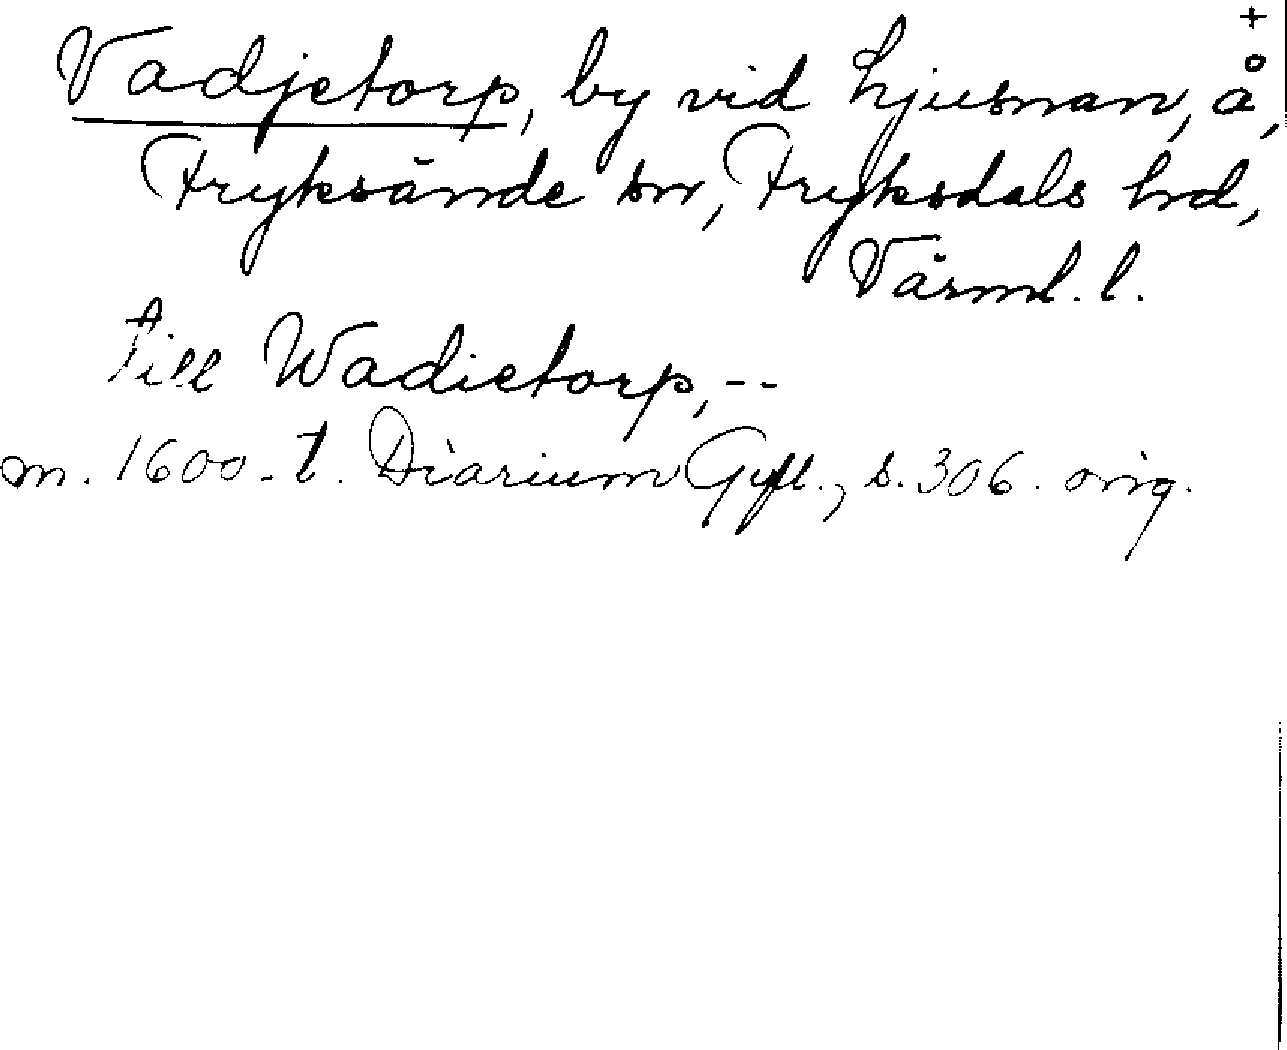 +
Vadjetorp, by vid Ljusnan, å,
Fryksände sn, Fryksdals hd,
Värml. l.
till Wadietorp, --
m. 1600-t. Diarium Gyll., s. 306. orig.